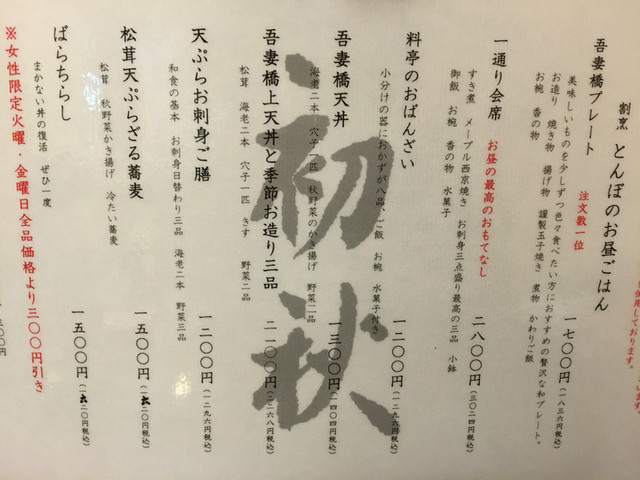 割烹 とんぼのお昼ごはん
吾妻橋プレート 注文数一位 一七〇〇円(一八三六円税込)
美味しいものを少しずつ色々食べたい方におすすめの贅沢な和プレート。
お造り 焼き物 揚げ物 謹製玉子焼き 煮物 かわりご飯
お椀 香の物
一通り会席 お昼の最高のおもてなし 二八〇〇円(三〇二四円税込)
すき煮 メープル西京焼き お刺身三点盛り最高の三品 小鉢
御飯 お椀 香の物 水菓子
料亭のおばんざい 一二〇〇円(一二九六円税込)
小分けの器におかずが八品、ご飯 お椀 水菓子付き
吾妻橋天丼 一三〇〇円(一四〇四円税込)
海老二本 穴子一匹 秋野菜のかき揚げ 野菜二品
吾妻橋上天丼と季節お造り三品 二一〇〇円(二二六八円税込)
松茸 海老二本 穴子一匹 きす 野菜二品
天ぷらお刺身ご膳 一二〇〇円(一二九六円税込)
和食の基本 お刺身日替わり三品 海老二本 野菜三品
松茸天ぷらざる蕎麦 一五〇〇円(一六二〇円税込)
松茸 秋野菜かき揚げ 冷たい蕎麦
ばらちらし 一五〇〇円(一六二〇円税込)
まかない丼の復活 ぜひ一度
※女性限定火曜・金曜日全品価格より三〇〇円引き
初秋